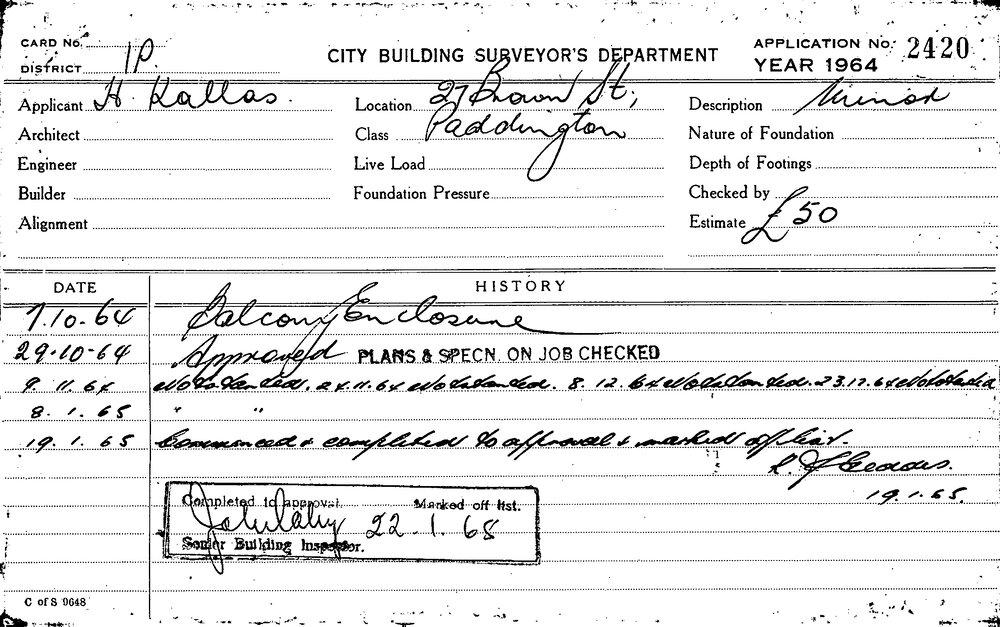 CARD No.
DISTRICT 1P.
CITY BUILDING SURVEYOR'S DEPARTMENT
APPLICATION No. 2420
YEAR 1964
Applicant H Kallas.
Architect
Engineer
Builder
Alignment
Location 27 Brown St,
Paddington
Class
Live Load
Foundation Pressure
Description Minor
Nature of Foundation
Depth of Footings
Checked by
Estimate £50
DATE HISTORY
7.10-64 Balcony Enclosure
29.10-64 Approved PLANS & SPECN. ON JOB CHECKED
9.11.64 Not started. 24.11.64 Not started. 8.12.64 Not started. 23.12.64 Not started
8.1.65 " "
19.1.65 Commenced & completed to approval & marked off list.
Geddes.
19.1.65.
Completed to approval. Marked off list.
22.1.65
Senior Building Inspector.
C of S 9648